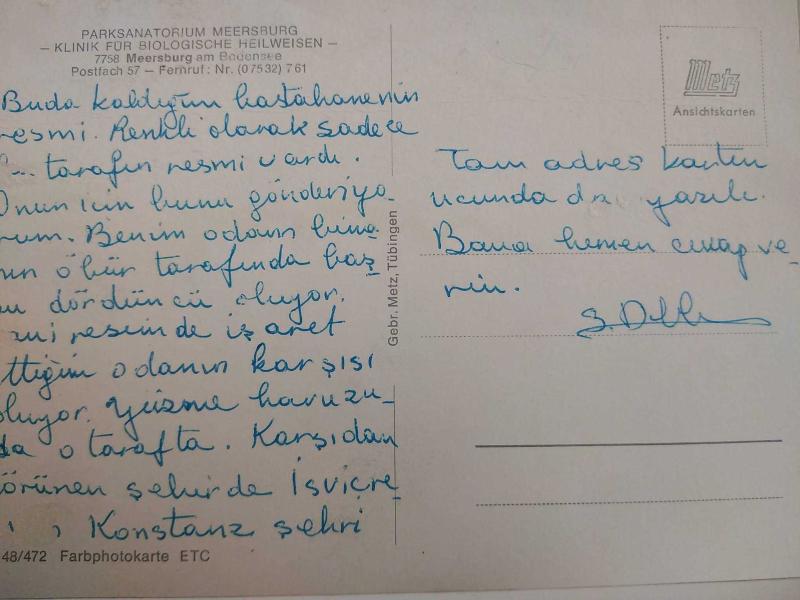 PARKSANATORIUM MEERSBURG
– KLINIK FÜR BIOLOGISCHE HEILWEISEN –
7758 Meersburg am Bodensee
Postfach 57 – Fernruf: Nr. (07532) 761
Buda kaldığım hastahanenin
resmi. Renkli olarak sadece
... tarafın resmi vardı.
Onun için bunu gönderiyo-
rum. Benim odam bina-
nın öbür tarafında baş
dördüncü oluyor.
resimde işaret
ettiğim odanın karşısı
oluyor. Yüzme havuzu-
da o tarafta. Karşıdan
görünen şehirde İsviçre
Konstanz şehri
48/472 Farbphotokarte ETC
Gebr. Metz, Tübingen
Metz
Ansichtskarten
Tam adres kartın
ucunda da yazılı.
Bana hemen cevap ve-
rin.